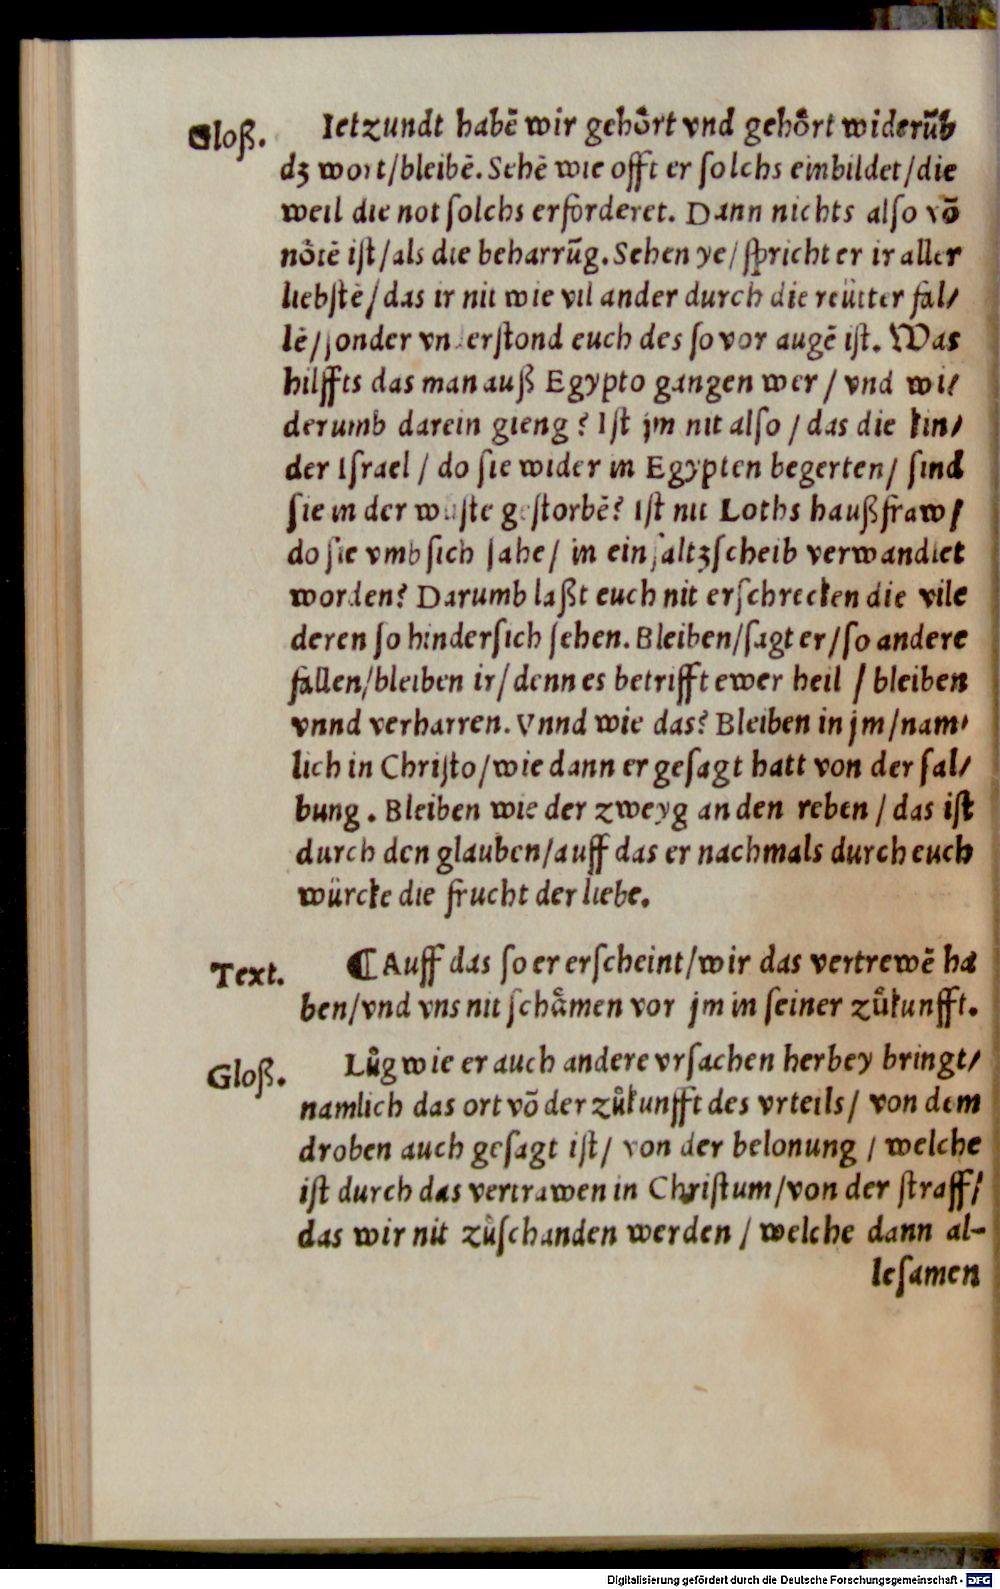 Gloß. Ietzundt habẽ wir gehoͤrt vnd gehoͤrt widerũb
dz wort/bleibẽ. Sehẽ wie offt er ſolchs einbildet/die
weil die not ſolchs erforderet. Dann nichts alſo võ
noͤtẽ iſt/als die beharrũg. Sehen ye/ſpricht er ir aller
liebſtẽ/das ir nit wie vil ander durch die reütter fal/
lẽ/ſonder vnderſtond euch des ſo vor augẽ iſt. Was
hilffts das man auß Egypto gangen wer/vnd wi/
derumb darein gieng? Iſt jm nit alſo/das die kin/
der Iſrael/do ſie wider in Egypten begerten/ſind
ſie in der wuͤſte geſtorbẽ? Iſt nit Loths haußfraw/
do ſie vmb ſich ſahe/in ein ſaltzſcheib verwandlet
worden? Darumb laßt euch nit erſchrecken die vile
deren ſo hinderſich ſehen. Bleiben/ſagt er/ſo andere
fallen/bleiben ir/denn es betrifft ewer heil/bleiben
vnnd verharren. Vnnd wie das? Bleiben in jm/nam/
lich in Chriſto/wie dann er geſagt hatt von der ſal/
bung. Bleiben wie der zweyg an den reben/das iſt
durch den glauben/auff das er nachmals durch euch
würcke die frucht der liebe.
Text. ¶ Auff das ſo er erſcheint/wir das vertrewẽ ha
ben/vnd vns nit ſchaͤmen vor jm in ſeiner zuͦkunfft.
Gloß. Luͦg wie er auch andere vrſachen herbey bringt/
namlich das ort võ der zuͦkunfft des vrteils/von dem
droben auch geſagt iſt/von der belonung/welche
iſt durch das vertrawen in Chriſtum/von der ſtraff/
das wir nit zuͦſchanden werden/welche dann al-
leſamen
Digitalisierung gefördert durch die Deutsche Forschungsgemeinschaft - DFG